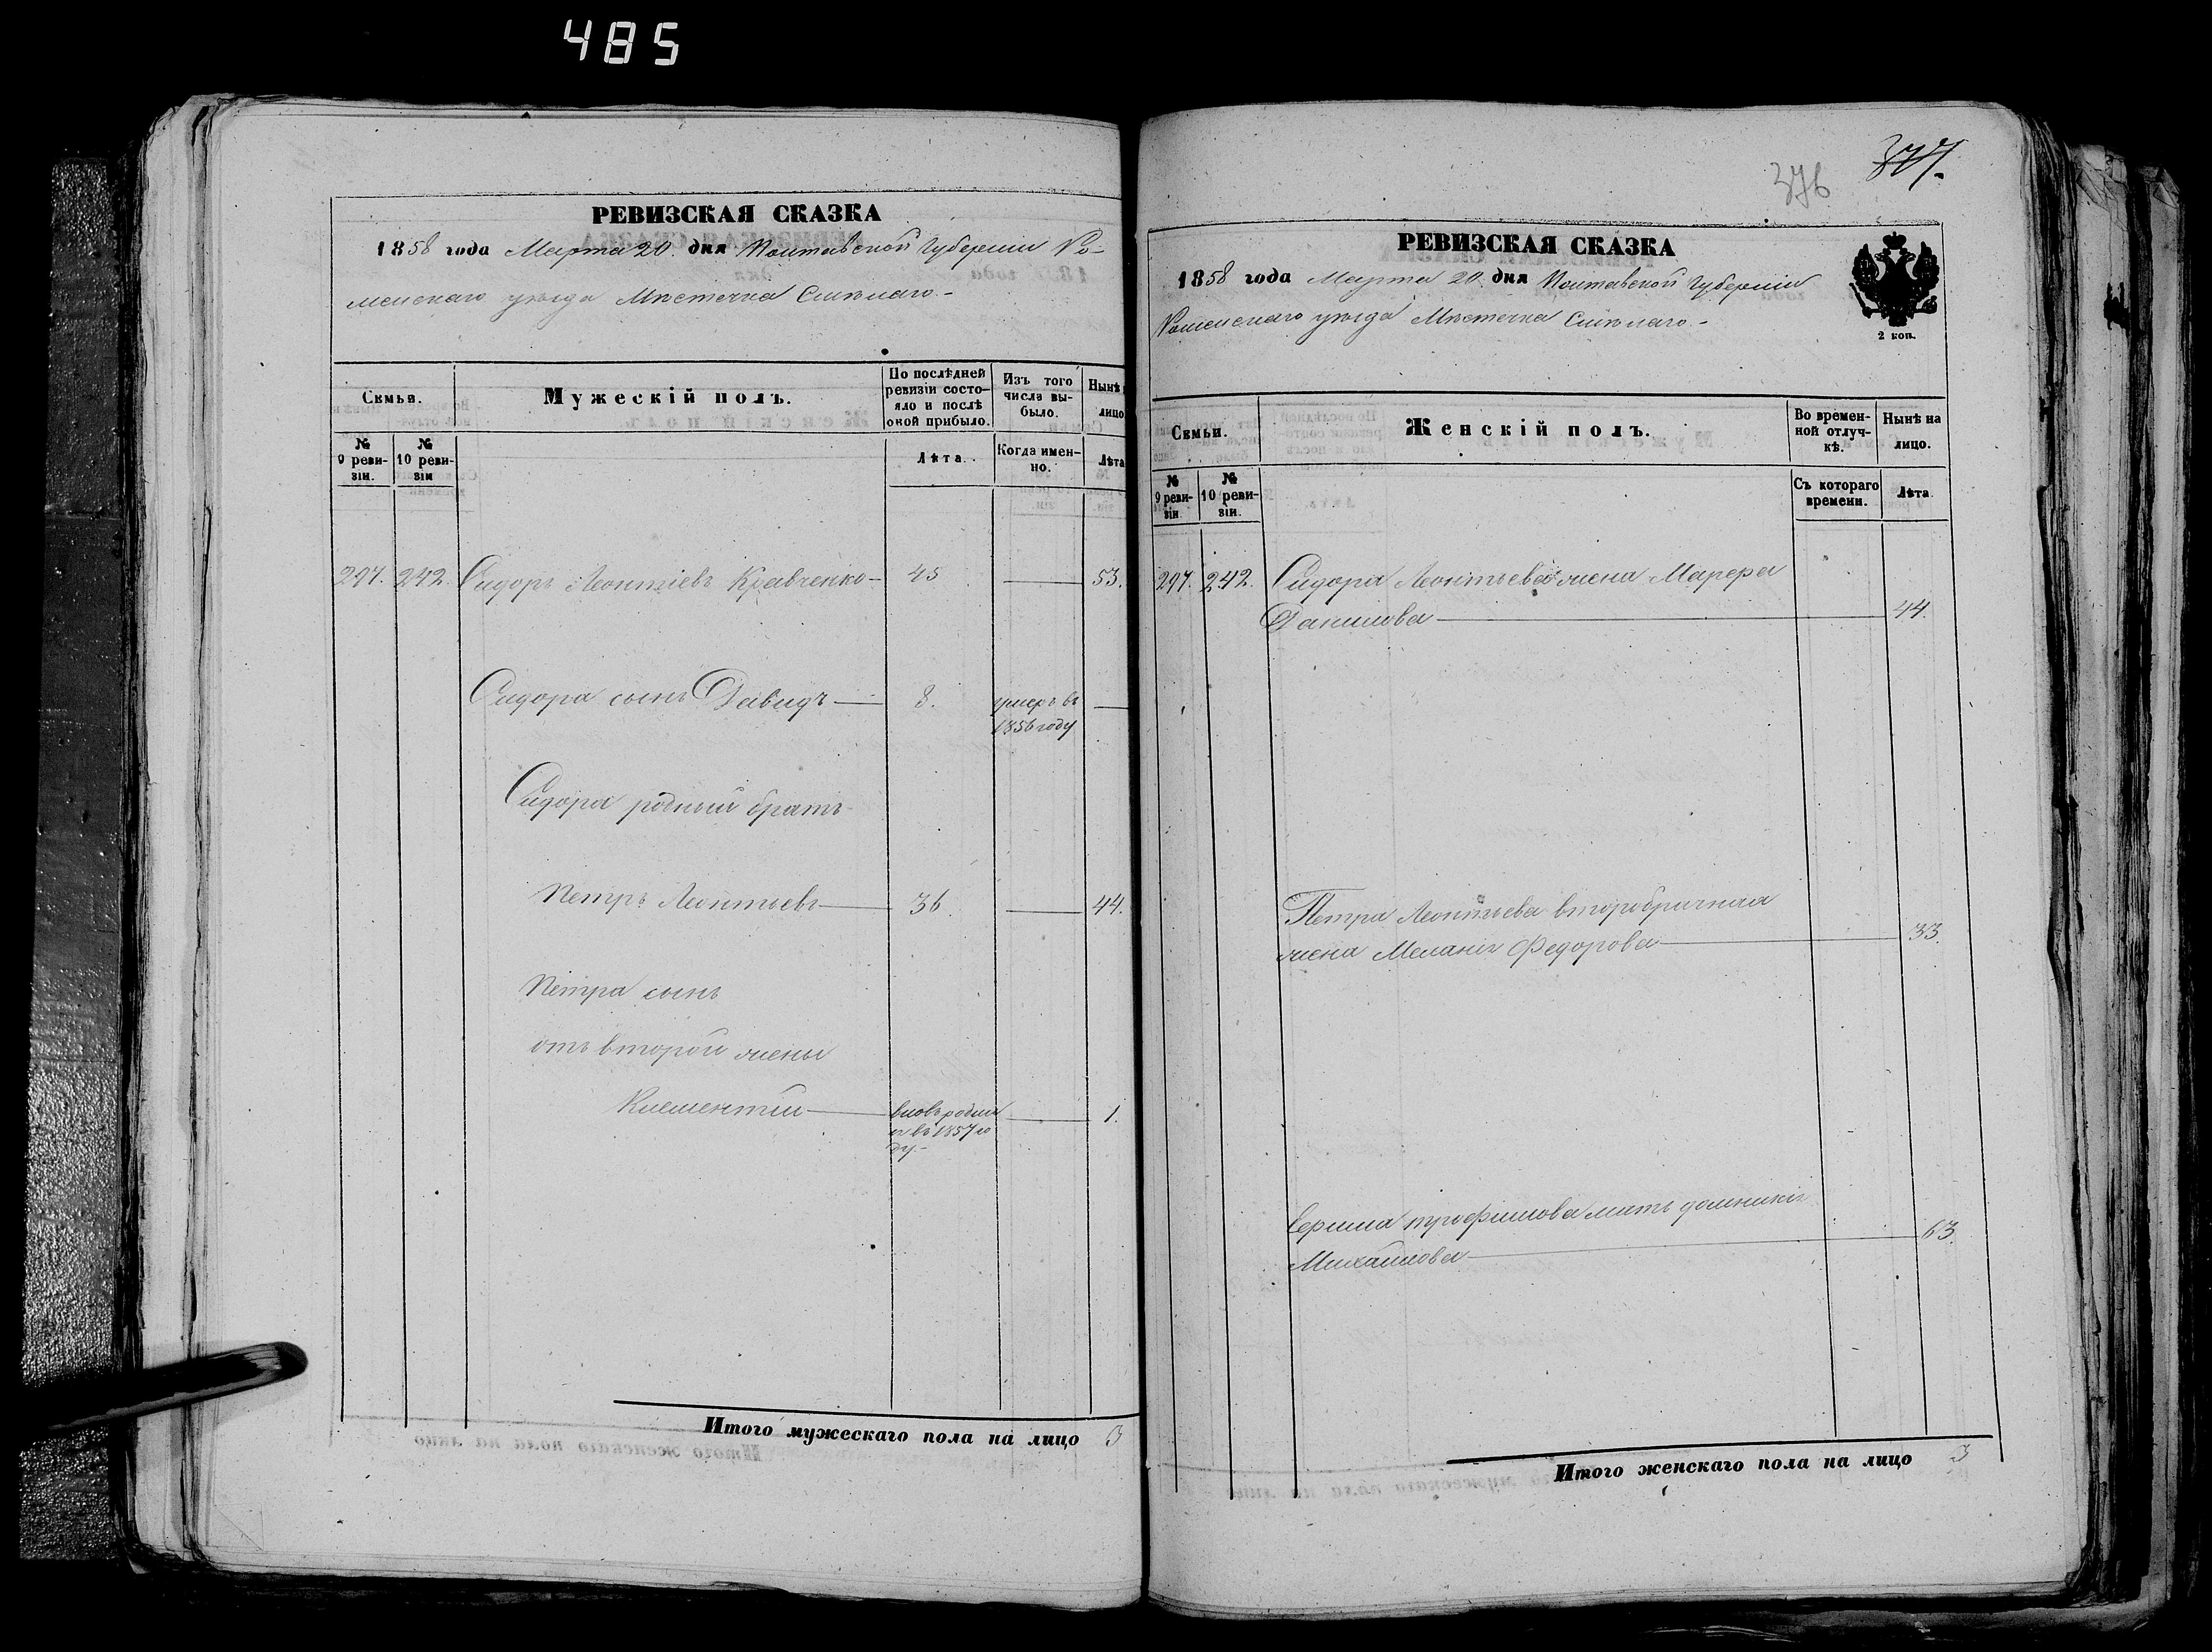 485
РЕВИЗСКАЯ СКАЗКА
1858 года Марта 20. дня Полтавской Губерніи Ро-
менскаго уѣзда Мѣстечка Смѣлаго-
Семьи.
Мужескій полъ.
По послѣдней
ревизіи состо-
яло и послѣ
оной прибыло.
Изъ того
числа вы-
было.
Нынѣ
лицо
№
9 реви-
зіи.
№
10 реви-
зіи
Лѣта.
Когда имен-
но.
Лѣта
297. 242. Сидоръ Леонтіевъ Кравченко- 45 — 53.
Сидора сынъ Давидъ — 8. умеръ въ —
1856 году
Сидора родный братъ
Петръ Леонтьевъ — 36. — 44.
Петра сынъ
отъ второй жены
Климентій — вновь родил — 1.
ся въ 1857 го
ду-
Итого мужескаго пола на лицо 3
376 377.
РЕВИЗСКАЯ СКАЗКА
1858 года Марта 20. дня Полтавской Губерніи
Роменскаго уѣзда Мѣстечка Смѣлаго-
2 коп.
Семьи.
Женскій полъ.
Во времен-
ной отлуч-
кѣ.
Нынѣ на
лицо.
№
9 реви-
зіи
№
10 реви-
зіи.
Съ котораго
времени.
Лѣта.
297. 242. Сидора Леонтьева жена Марфа
Данилова — 44.
Петра Леонтьева второбрачная
жена Меланія Федорова — 33.
Трофимова мать Домникія
Михайлова — 63.
Итого женскаго пола на лицо 3